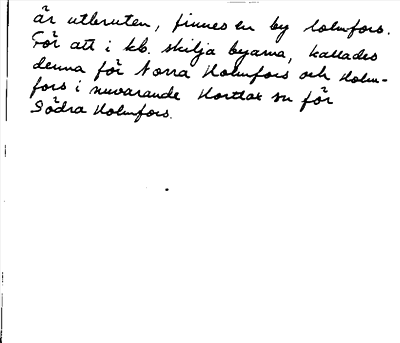 är utbruten, finnes en by Holmfors.
För att i kb. skilja byarna, kallades
denna för Norra Holmfors och Holm-
fors i nuvarande Hortlax sn för
Södra Holmfors.